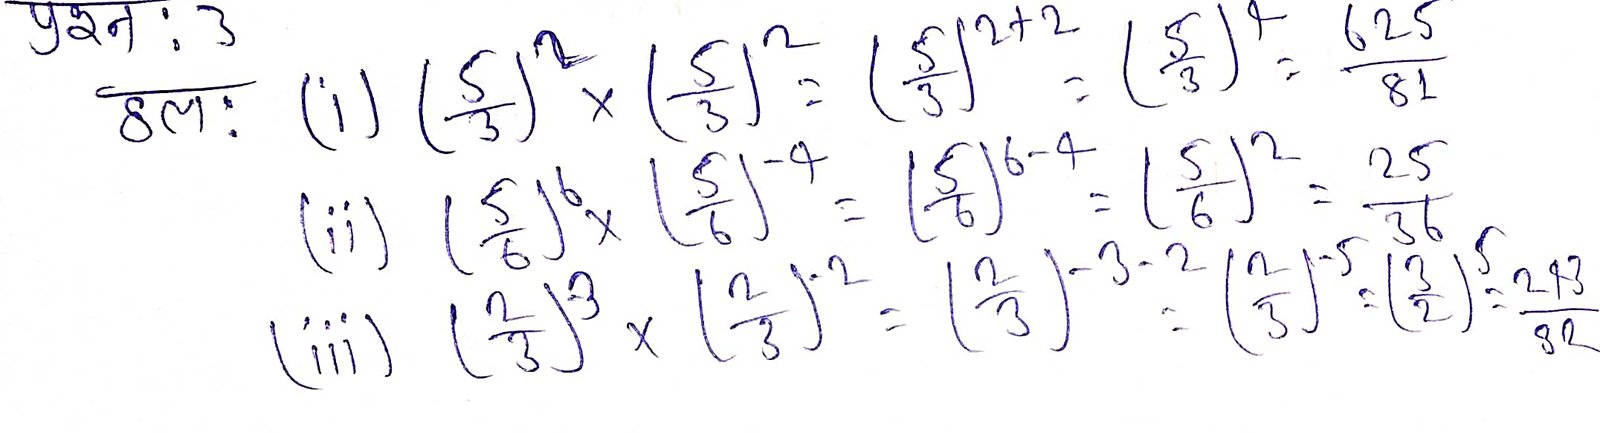 प्रश्न : 3
हल: (i) (5/3)^2 × (5/3)^2 = (5/3)^{2+2} = (5/3)^4 = 625/81
(ii) (5/6)^6 × (5/6)^{-4} = (5/6)^{6-4} = (5/6)^2 = 25/36
(iii) (2/3)^{-3} × (2/3)^{-2} = (2/3)^{-3-2} = (2/3)^{-5} = (3/2)^5 = 243/32